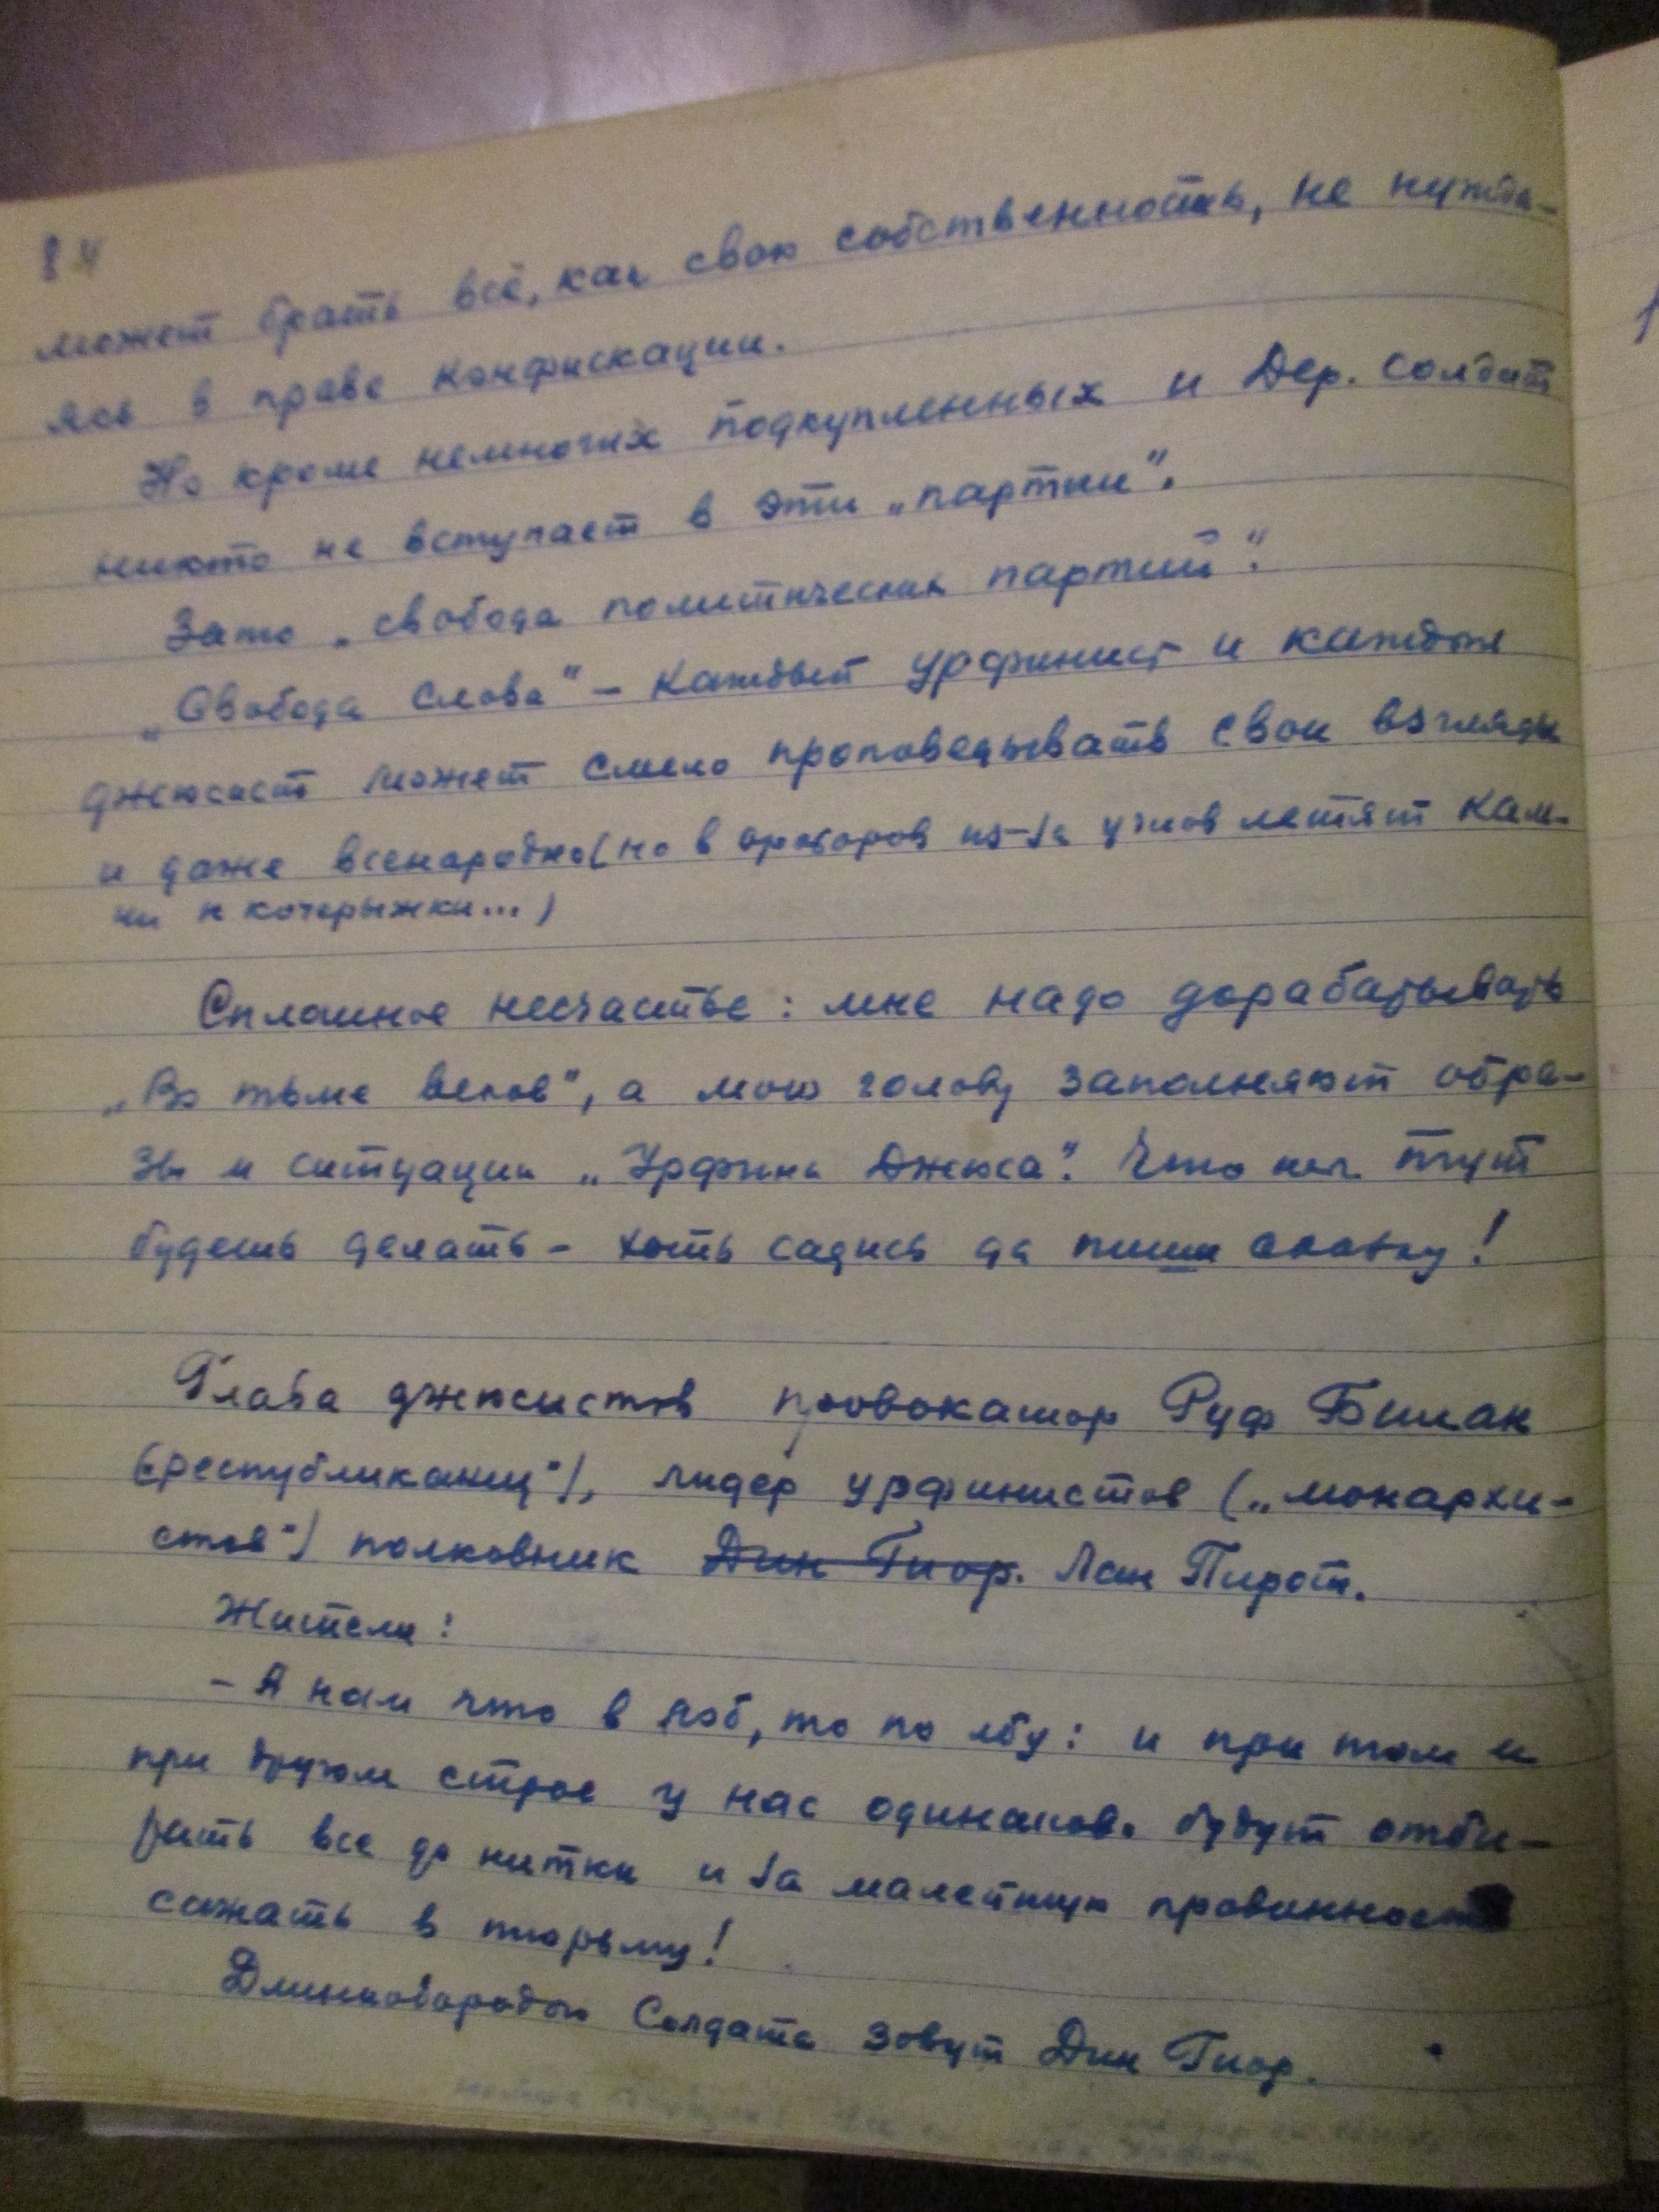 84
может брать всё, как свою собственность, не нужда-
ясь в праве конфискации.
Но кроме немногих подкупленных и Дер. солдат
никто не вступает в эти „партии".
Зато „свобода политических партий".
„Свобода слова" – каждый урфинист и каждый
джюсист может смело проповедывать свои взгляды
и даже всенародно (но в ораторов из-за углов летят кам-
ни и кочерыжки...)
Сплошное несчастье: мне надо дорабатывать
„Во тьме веков", а мою голову заполняют обра-
зы и ситуации „Урфина Джюса". Что тут
будешь делать – хоть садись да пиши сказку!
Глава джюсистов провокатор Руф Билан
(„республиканц"), лидер урфинистов („монархи-
стов") полковник Дин Гиор. Лан Пирот.
Жители:
– А нам что в лоб, то по лбу: и при том и
при другом строе у нас одинаково будут отби-
рать все до нитки и за малейшую провинность
сажать в тюрьму!
Длиннобородого Солдата зовут Дин Гиор.